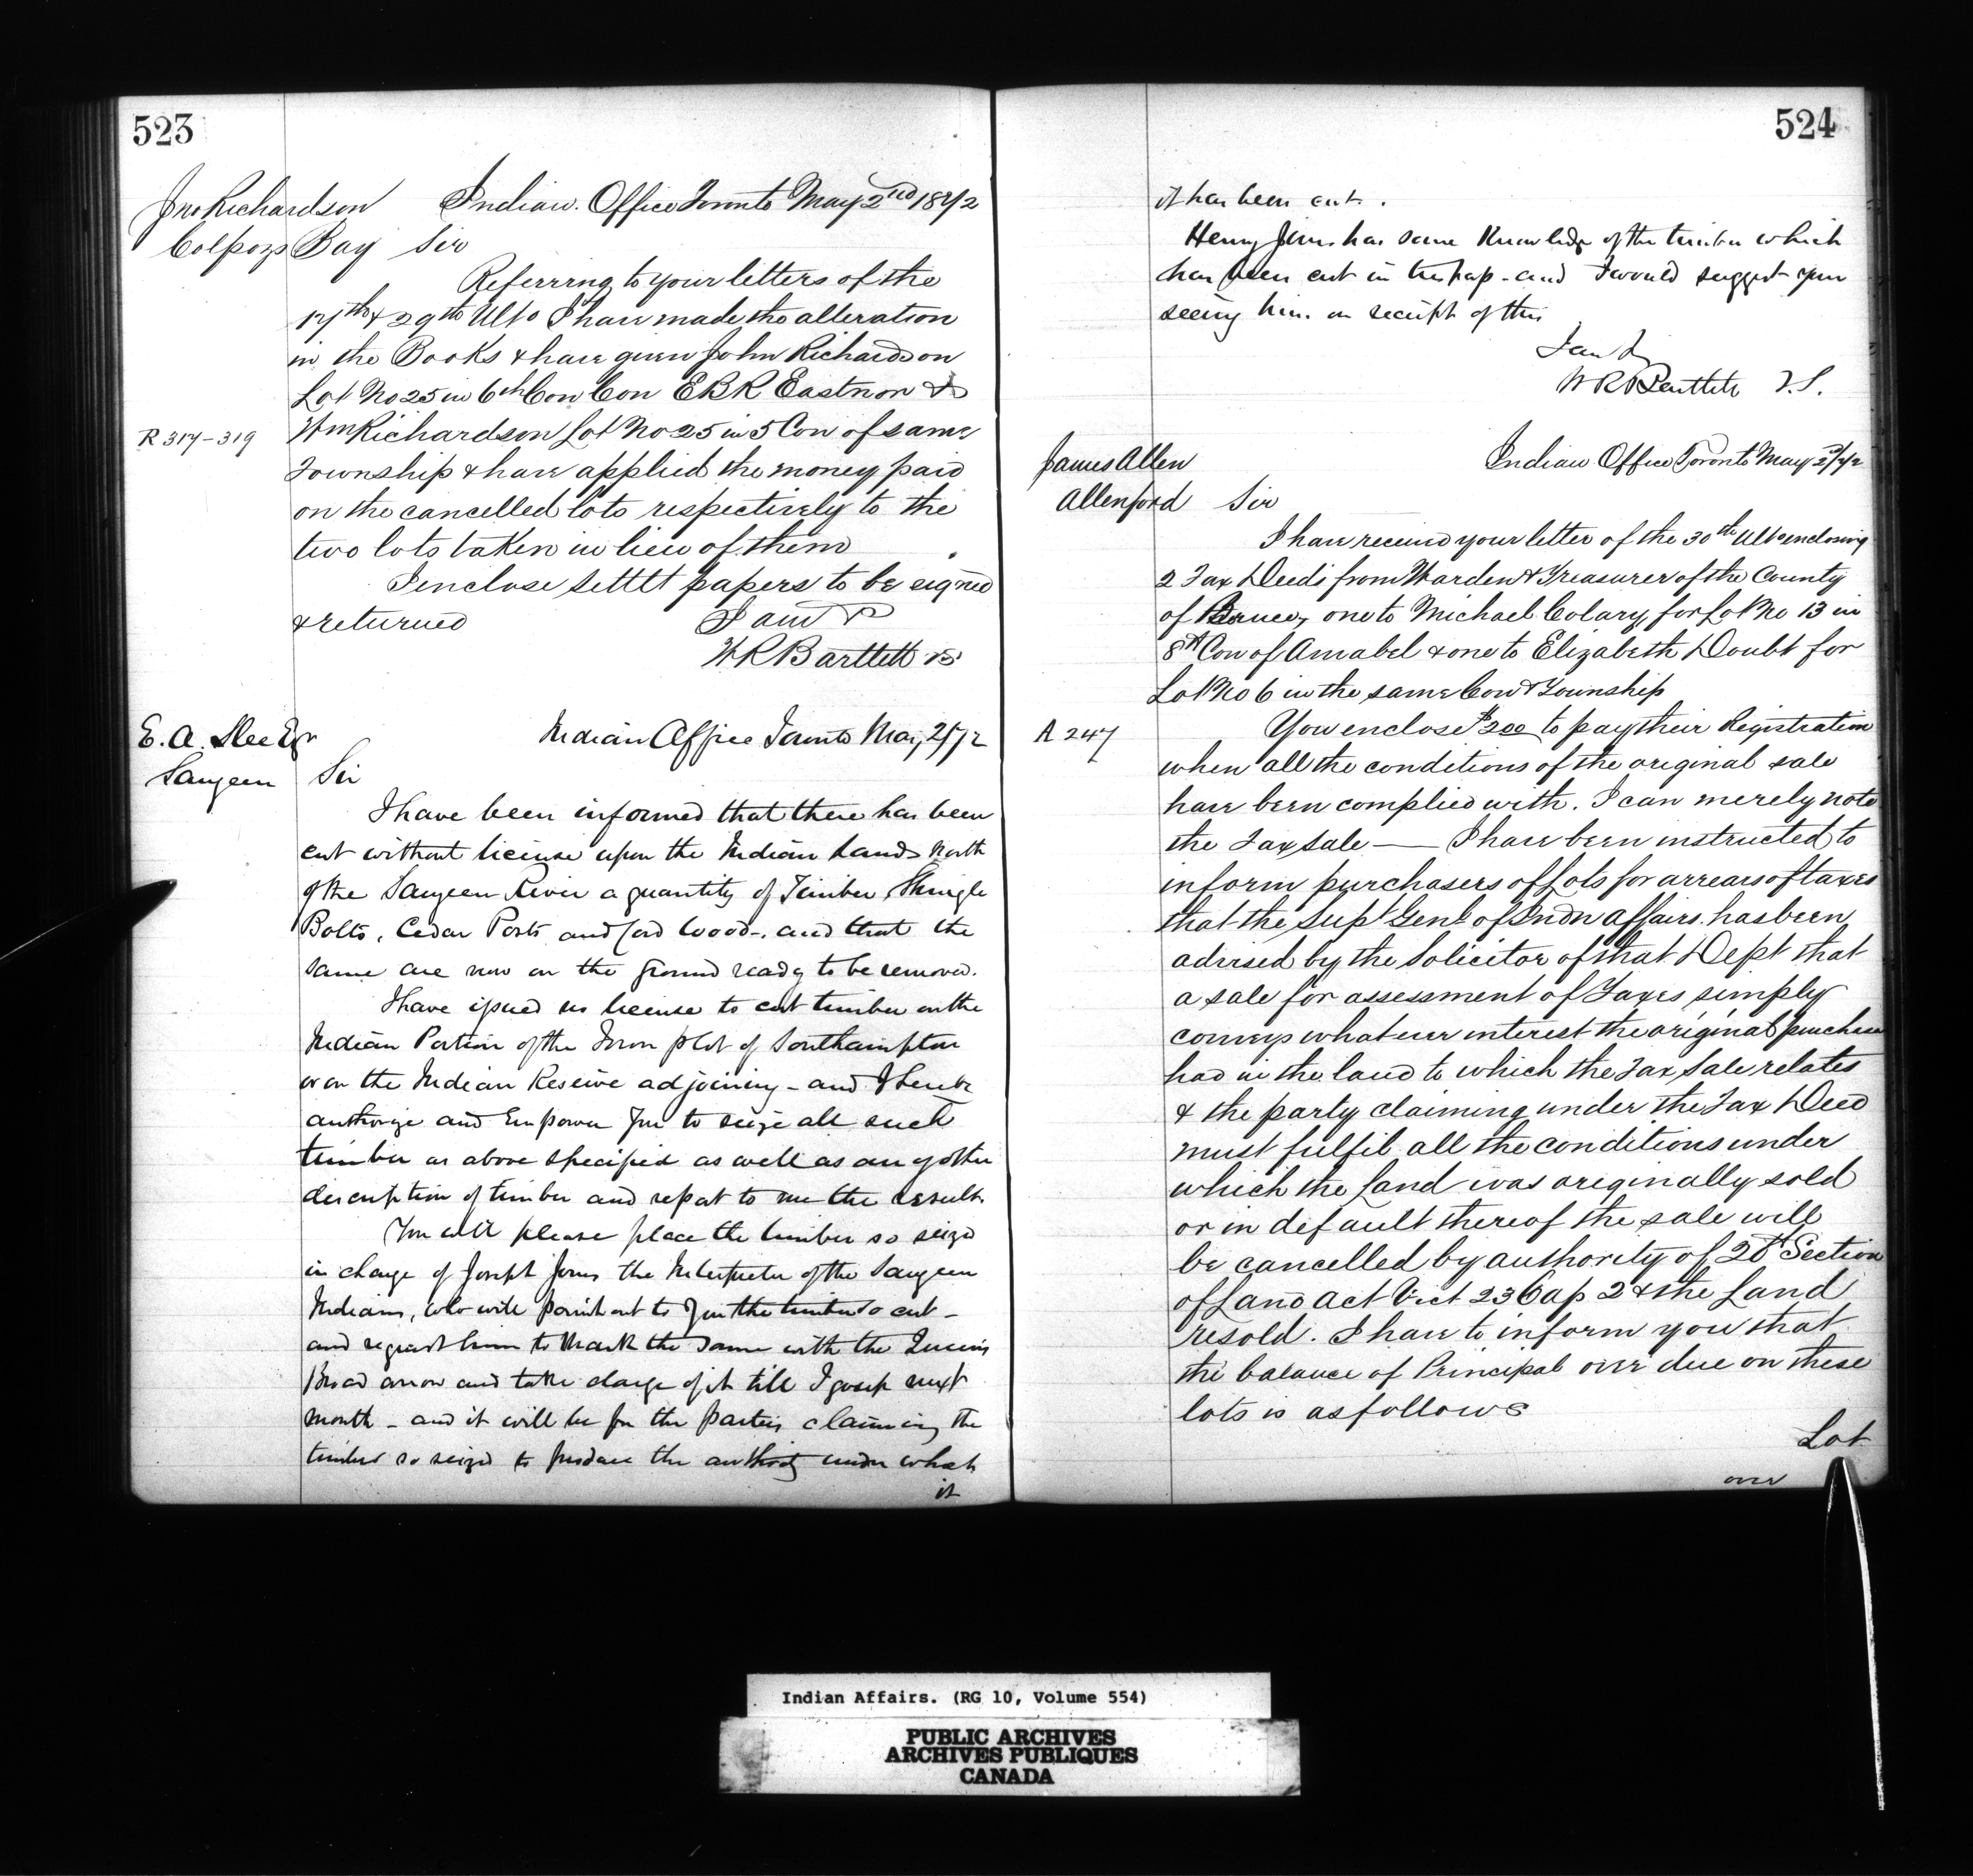 523
Jno Richardson Indian Office Toronto May 2nd 1872
Colpoys Bay Sir
Referring to your letters of the
17th & 29th Ulto I have made the alteration
in the Books & have given John Richardson
Lot No 25 in 6th Con Con EBR Eastnor &
R 317-319 Wm Richardson Lot No 25 in 5 Con of same
Township & have applied the money paid
on the cancelled lots respectively to the
two lots taken in lieu of them
I enclose settlt papers to be signed
& returned I am
W R Bartlett
E. A. Slee Esqr Indian Office Toronto May 2/72
Saugeen Sir
I have been informed that there has been
cut without license upon the Indian Lands North
of the Saugeen River a quantity of Timber, Shingle
Bolts, Cedar Posts and Cord Wood - and that the
same are now on the ground ready to be removed.
I have issued no license to cut timber on the
Indian Portion of the Town plot of Southampton
or on the Indian Reserve adjoining - and I hereby
authorize and Empower you to seize all such
timber as above specified as well as any other
description of timber and report to me the result.
You will please place the timber so seized
in charge of Joseph Jones the Interpreter of the Saugeen
Indians, who will point out to you the timber so cut -
and request him to Mark the same with the Queen's
Broad arrow and take charge of it till I go up next
month - and it will be for the parties claiming the
timber so seized to produce the authority under which
it
524
it has been cut.
Henry Jones has some Knowledge of the timber which
has been cut in trespass - and I would suggest your
seeing him on receipt of this
I am
W R Bartlett V.S.
James Allen Indian Office Toronto May 2/72
Allenford Sir
I have received your letter of the 30th Ulto enclosing
2 Tax Deeds from Warden & Treasurer of the County
of Bruce, one to Michael Colary for Lot No 13 in
8th Con of Amabel & one to Elizabeth Doubt for
Lot No 6 in the same Con & Township
A 247 You enclose $2.00 to pay their Registration
when all the conditions of the original sale
have been complied with. I can merely note
the Tax Sale — I have been instructed to
inform purchasers of Lots for arrears of taxes
that the Supt Genl of Indn Affairs has been
advised by the Solicitor of that Dept that
a sale for assessment of Taxes simply
conveys whatever interest the original purchaser
had in the land to which the Tax Sale relates
& the party claiming under the Tax Deed
must fulfil all the conditions under
which the Land was originally sold
or in default thereof the sale will
be cancelled by authority of 20th Section
of Land Act Vict 23 Cap 2 & the Land
resold. I have to inform you that
the balance of Principal over due on these
lots is as follows
Lot
over
Indian Affairs. (RG 10, Volume 554)
PUBLIC ARCHIVES
ARCHIVES PUBLIQUES
CANADA